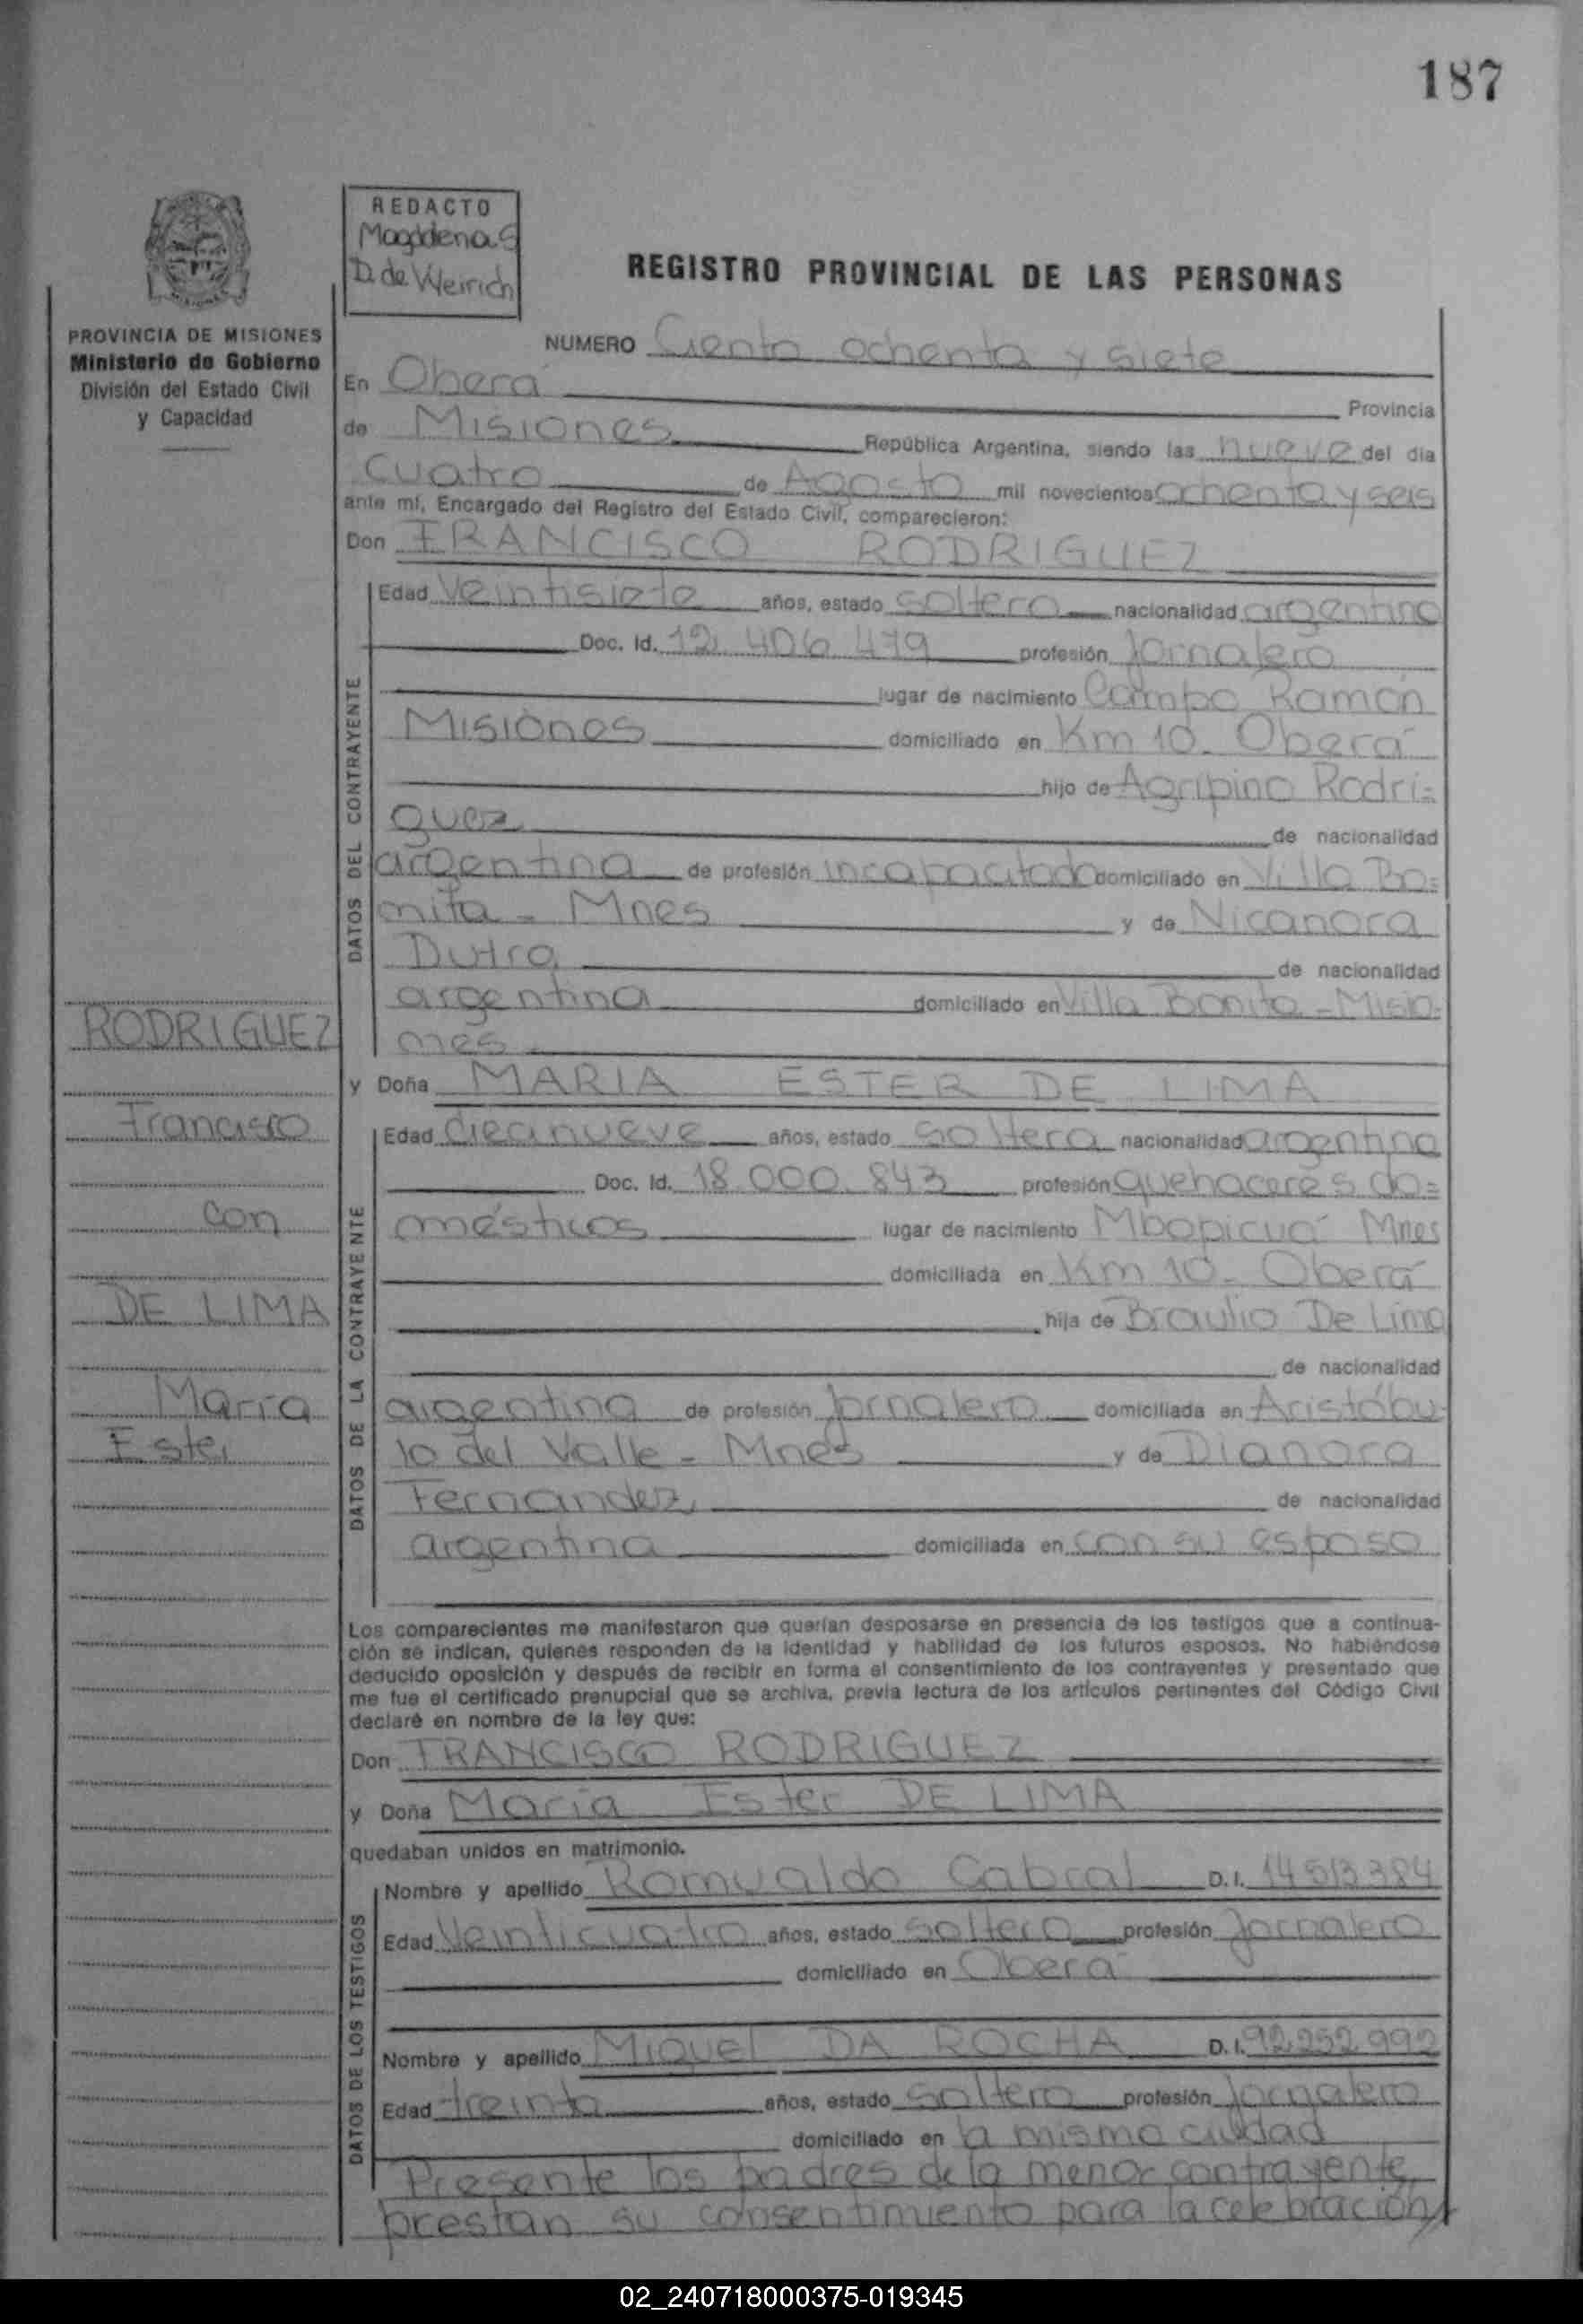 187
REDACTO
Magdalena S
D. de Weirich
REGISTRO PROVINCIAL DE LAS PERSONAS
PROVINCIA DE MISIONES
Ministerio de Gobierno
División del Estado Civil
y Capacidad
NUMERO Ciento ochenta y siete
En Oberá Provincia
de Misiones República Argentina, siendo las nueve del día
cuatro de Agosto mil novecientos ochenta y seis
ante mí, Encargado del Registro del Estado Civil, comparecieron:
Don FRANCISCO RODRIGUEZ
DATOS DEL CONTRAYENTE
Edad Veintisiete años, estado soltero nacionalidad argentino
Doc. Id. 12.406.479 profesión Jornalero
lugar de nacimiento Campo Ramón
Misiones domiciliado en Km 10. Oberá
hijo de Agripino Rodrí=
guez de nacionalidad
argentina de profesión incapacitado domiciliado en Villa Bo=
nita - Mnes y de Nicanora
Dutra de nacionalidad
argentina domiciliado en Villa Bonita - Misio-
nes
y Doña MARIA ESTER DE LIMA
DATOS DE LA CONTRAYENTE
Edad diecinueve años, estado soltera nacionalidad argentina
Doc. Id. 18.000.843 profesión quehaceres do=
mésticos lugar de nacimiento Mbopicuá Mnes
domiciliada en Km 10. Oberá
hija de Braulio De Lima
de nacionalidad
argentina de profesión jornalero domiciliada en Aristóbu-
lo del Valle - Mnes y de Dianora
Fernandez de nacionalidad
argentina domiciliada en con su esposo
RODRIGUEZ
Francisco
con
DE LIMA
María
Ester
Los comparecientes me manifestaron que querían desposarse en presencia de los testigos que a continua-
ción se indican, quienes responden de la identidad y habilidad de los futuros esposos. No habiéndose
deducido oposición y después de recibir en forma el consentimiento de los contrayentes y presentado que
me fue el certificado prenupcial que se archiva, previa lectura de los artículos pertinentes del Código Civil
declaré en nombre de la ley que:
Don FRANCISCO RODRIGUEZ
y Doña María Ester DE LIMA
quedaban unidos en matrimonio.
DATOS DE LOS TESTIGOS
Nombre y apellido Romualdo Cabral D. I. 14.513.384
Edad Veinticuatro años, estado soltero profesión Jornalero
domiciliado en Oberá
Nombre y apellido MIGUEL DA ROCHA D. I. 92.252.992
Edad treinta años, estado soltero profesión Jornalero
domiciliado en la misma ciudad
Presente los padres de la menor contrayente,
prestan su consentimiento para la celebración
02_240718000375-019345